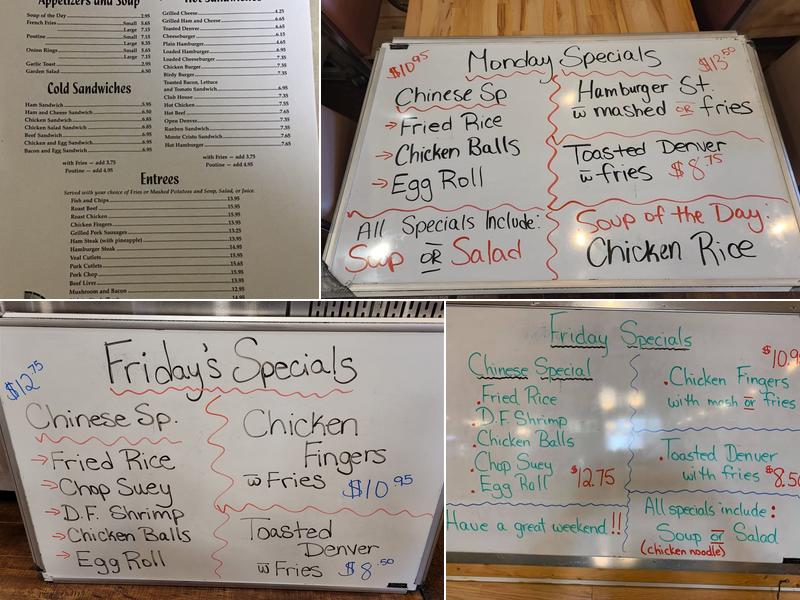 Appetizers and Soup
Soup of the Day 2.95
French Fries Small 5.65
Large 7.15
Poutine Small 7.15
Large 8.35
Onion Rings Small 5.65
Large 7.15
Garlic Toast 2.95
Garden Salad 6.50
Cold Sandwiches
Ham Sandwich 5.95
Ham and Cheese Sandwich 6.50
Chicken Sandwich 6.85
Chicken Salad Sandwich 6.85
Beef Sandwich 6.95
Chicken and Egg Sandwich 6.95
Bacon and Egg Sandwich 6.95
with Fries — add 3.75
Poutine — add 4.95
Hot Sandwiches
Grilled Cheese 4.25
Grilled Ham and Cheese 6.65
Toasted Denver 6.65
Cheeseburger 6.15
Plain Hamburger 4.65
Loaded Hamburger 6.95
Loaded Cheeseburger 7.35
Chicken Burger 7.55
Birdy Burger 7.35
Toasted Bacon, Lettuce
and Tomato Sandwich 6.95
Club House 7.35
Hot Chicken 7.55
Hot Beef 7.65
Open Denver 7.35
Rueben Sandwich 7.35
Monte Cristo Sandwich 7.65
Hot Hamburger 7.65
with Fries — add 3.75
Poutine — add 4.95
Entrees
Served with your choice of Fries or Mashed Potatoes and Soup, Salad, or Juice.
Fish and Chips 13.95
Roast Beef 15.95
Roast Chicken 15.95
Chicken Fingers 13.95
Grilled Pork Sausages 13.25
Ham Steak (with pineapple) 13.95
Hamburger Steak 14.95
Veal Cutlets 15.95
Pork Cutlets 15.65
Pork Chop 15.95
Beef Liver 13.95
Mushroom and Bacon 12.95
14.95
$10.95
Monday Specials
$13.50
Chinese Sp
→ Fried Rice
→ Chicken Balls
→ Egg Roll
Hamburger St.
w̅ mashed OR fries
Toasted Denver
w̅ fries $8.75
All Specials Include:
Soup OR Salad
Soup of the Day:
Chicken Rice
$12.75
Friday's Specials
Chinese Sp.
→ Fried Rice
→ Chop Suey
→ D.F. Shrimp
→ Chicken Balls
→ Egg Roll
Chicken
Fingers
w̅ Fries $10.95
Toasted
Denver
w̅ Fries $8.50
Friday Specials
Chinese Special
. Fried Rice
. D.F. Shrimp
. Chicken Balls
. Chop Suey
. Egg Roll $12.75
Have a great weekend!!
$10.9
. Chicken Fingers
with mash or fries
. Toasted Denver
with fries $8.50
All specials include:
Soup or Salad
(chicken noodle)